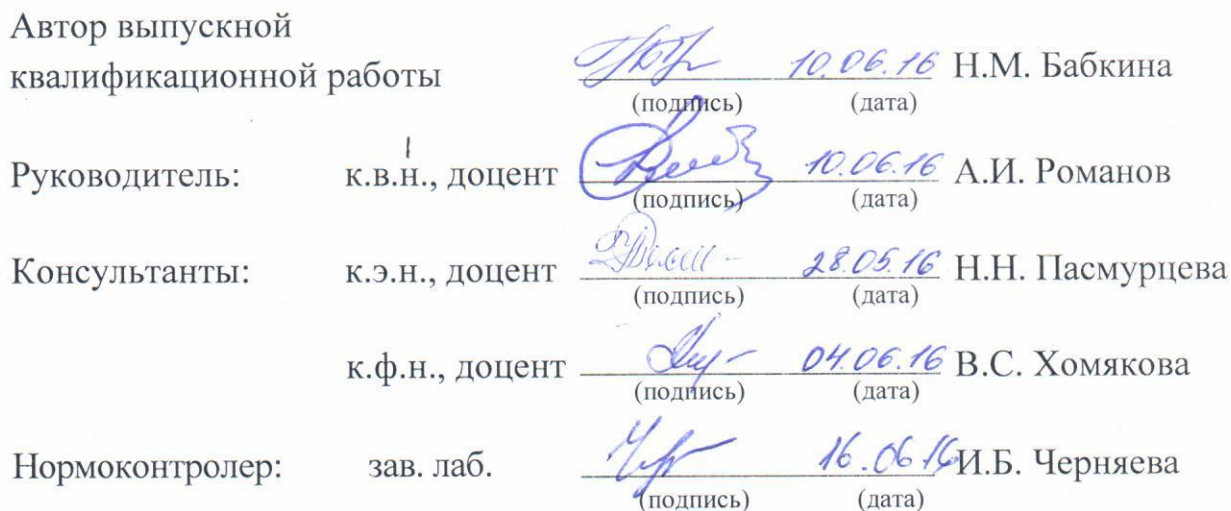 Автор выпускной
квалификационной работы 10.06.16 Н.М. Бабкина
(подпись) (дата)
Руководитель: к.в.н., доцент 10.06.16 А.И. Романов
(подпись) (дата)
Консультанты: к.э.н., доцент 28.05.16 Н.Н. Пасмурцева
(подпись) (дата)
к.ф.н., доцент 04.06.16 В.С. Хомякова
(подпись) (дата)
Нормоконтролер: зав. лаб. 16.06.16 И.Б. Черняева
(подпись) (дата)